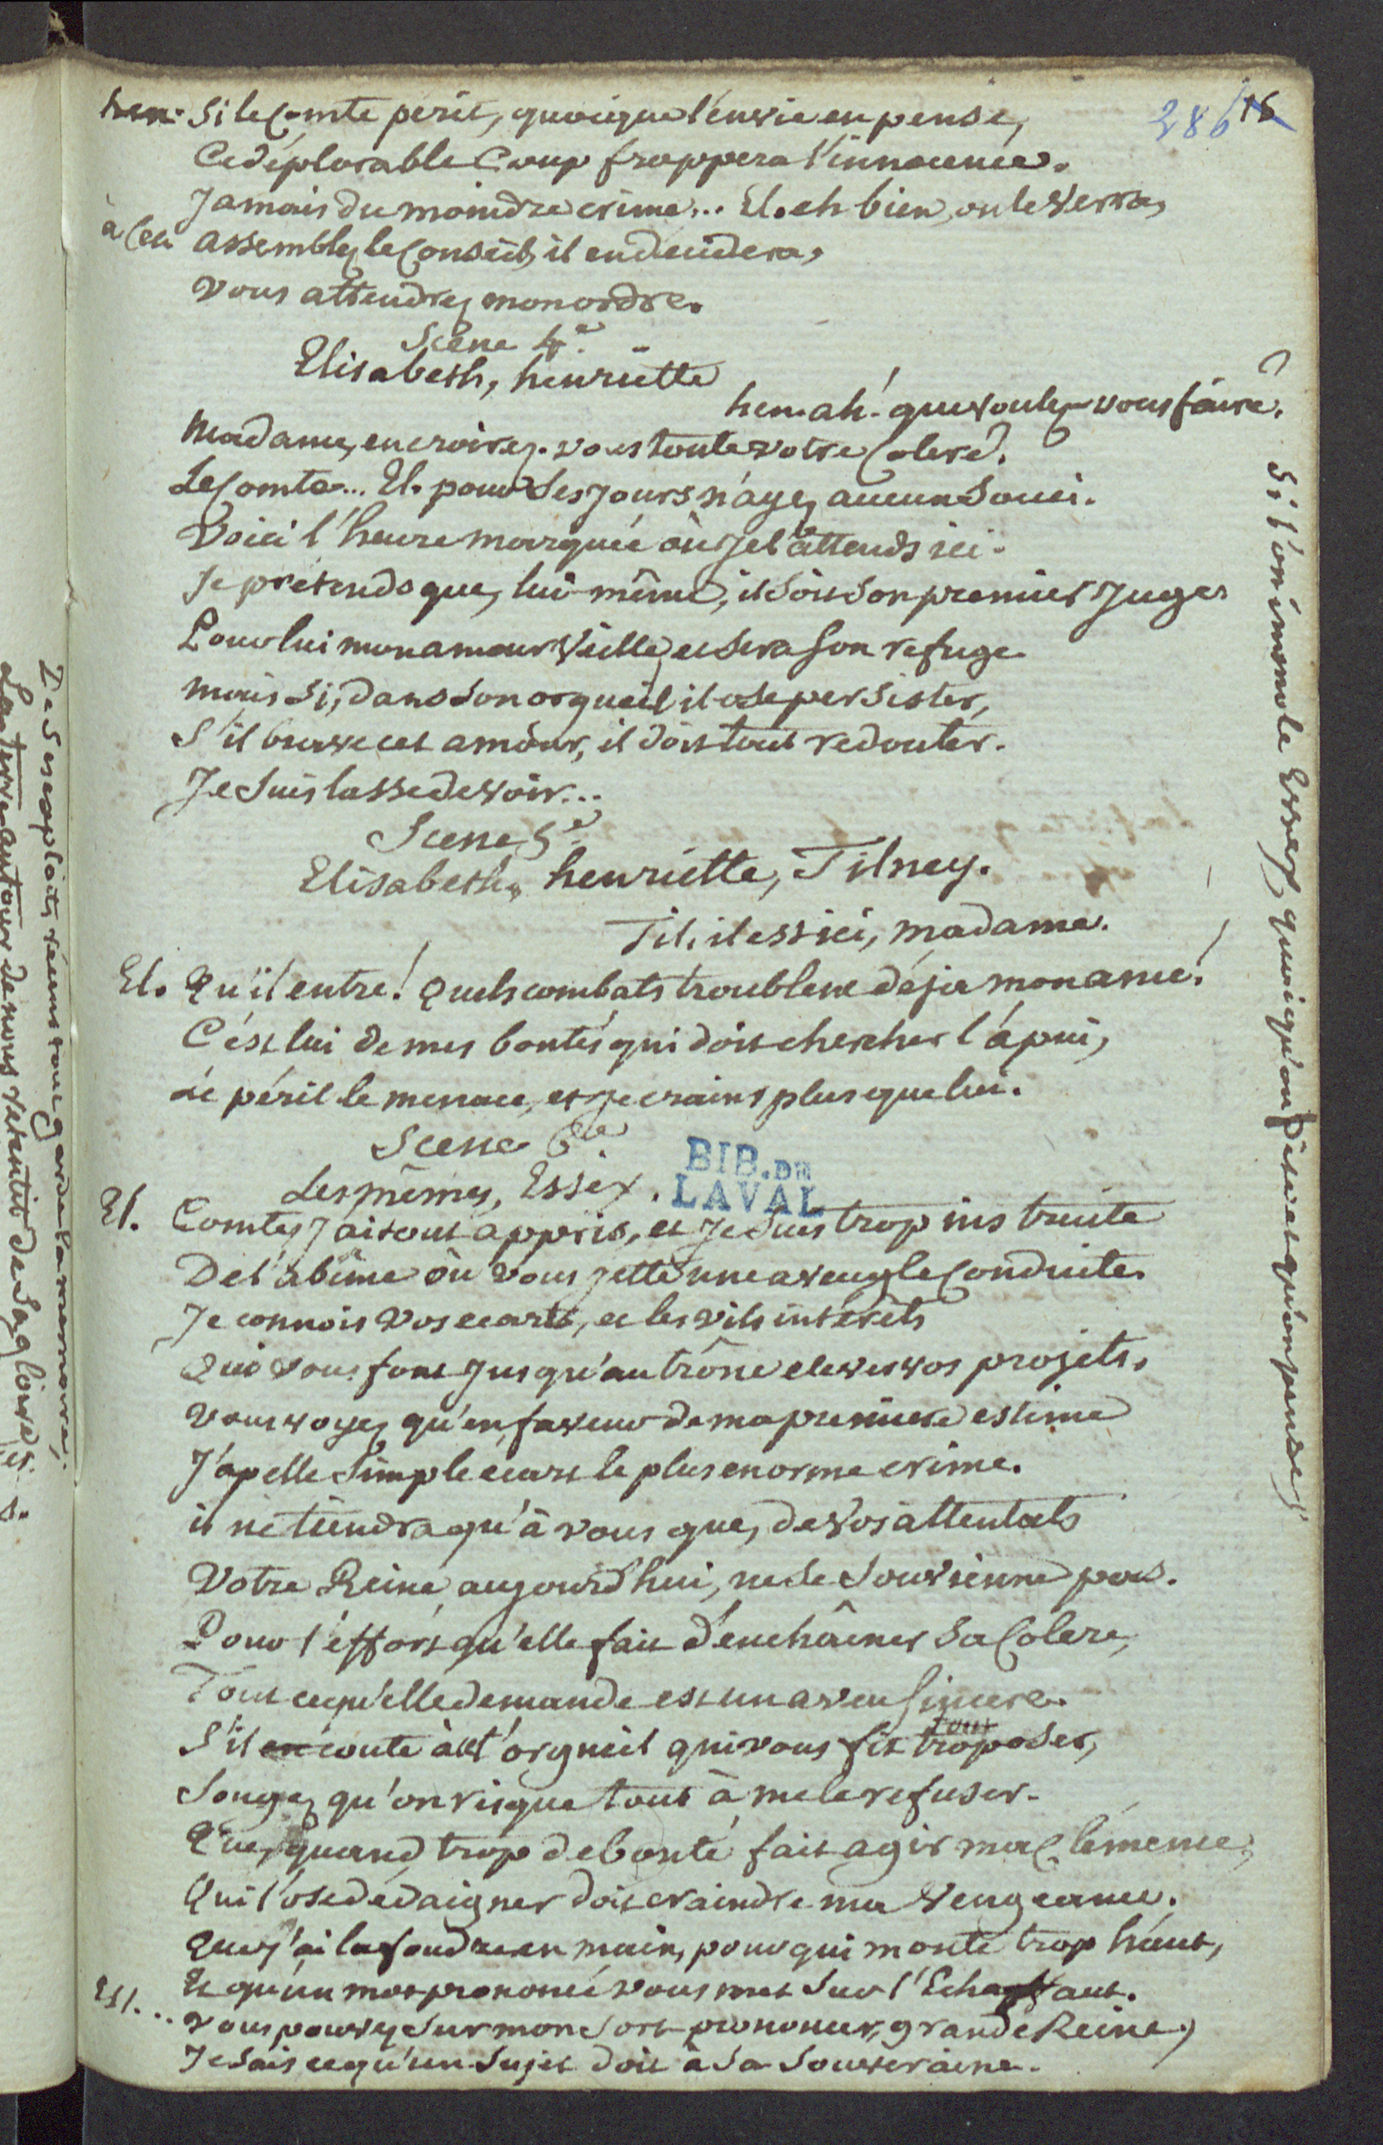 286 16
hen. Si le Comte périt, quoique l'envie en pense,
Ce déplorable Coup frappera l'innocence.
Jamais du moindre crime... El. eh bien, on le verra,
à Ces. assemblez le Conseil, il en decidera,
vous attendrez mon ordre.
Scene 4e.
Elisabeth, henriette
hen. ah! que voulez-vous faire?
Madame, en croirez-vous toute votre Colere?
Le Comte... El. pour Ses jours n'ayez aucun Souci.
Voici l'heure marquée où je l'attends ici.
Je prétends que, lui-même, il Soit Son premier Juge.
Pour lui mon amour Veille, et Sera Son refuge
mais Si, dans Son orgueil il ose persister,
S'il brave cet amour, il doit tout redouter.
Je Suis lasse de voir...
Scene 5e
Elisabeth, henriette, Tilney.
Til. il est ici, madame.
El. Qu'il entre! Quels combats troublent déja mon ame!
C'est lui de mes bontés qui doit chercher l'apui,
Le péril le menace, et je crains plus que lui.
Scene 6e.
Les mêmes, Essex.
BIB. DE
LAVAL
El. Comte, J'ai tout appris, et Je Suis trop instruite
De l'abîme où vous jette une aveugle Conduite.
Je connois vos ecarts, et les vils intérêts
Qui vous font Jusqu'au trône elever vos projets.
vous voyez qu'en faveur de ma premiere estime
J'apelle Simple écart le plus enorme crime.
il ne tiendra qu'à vous que, de vos attentats
Votre Reine aujourd'hui, ne Se Souvienne pas.
Pour l'effort qu'elle fait d'enchâiner Sa Colere,
Tout ce qu'elle demande est un aveu Sincere.
S'il en coute à l'orgueil qui vous fit tout oser,
Songez qu'on risque tout à me le refuser.
Que, quand trop de bonté fait agir ma Clémence,
Qui l'ose dédaigner doit craindre ma Vengeance.
Que J'ai la foudre en main, pour qui monte trop haut,
Et qu'un mot prononcé vous met Sur l'Echaffaut.
Ess... vous pouvez Sur mon Sort prononcer, grande Reine,
Je Sais ce qu'un Sujet doit à Sa Souveraine.
Si l'on immole Essex, quoiqu'on dise et qu'on pense,
De Ses exploits récens tout garde la memoire;
La terre autour de nous retentit de Sa gloire.